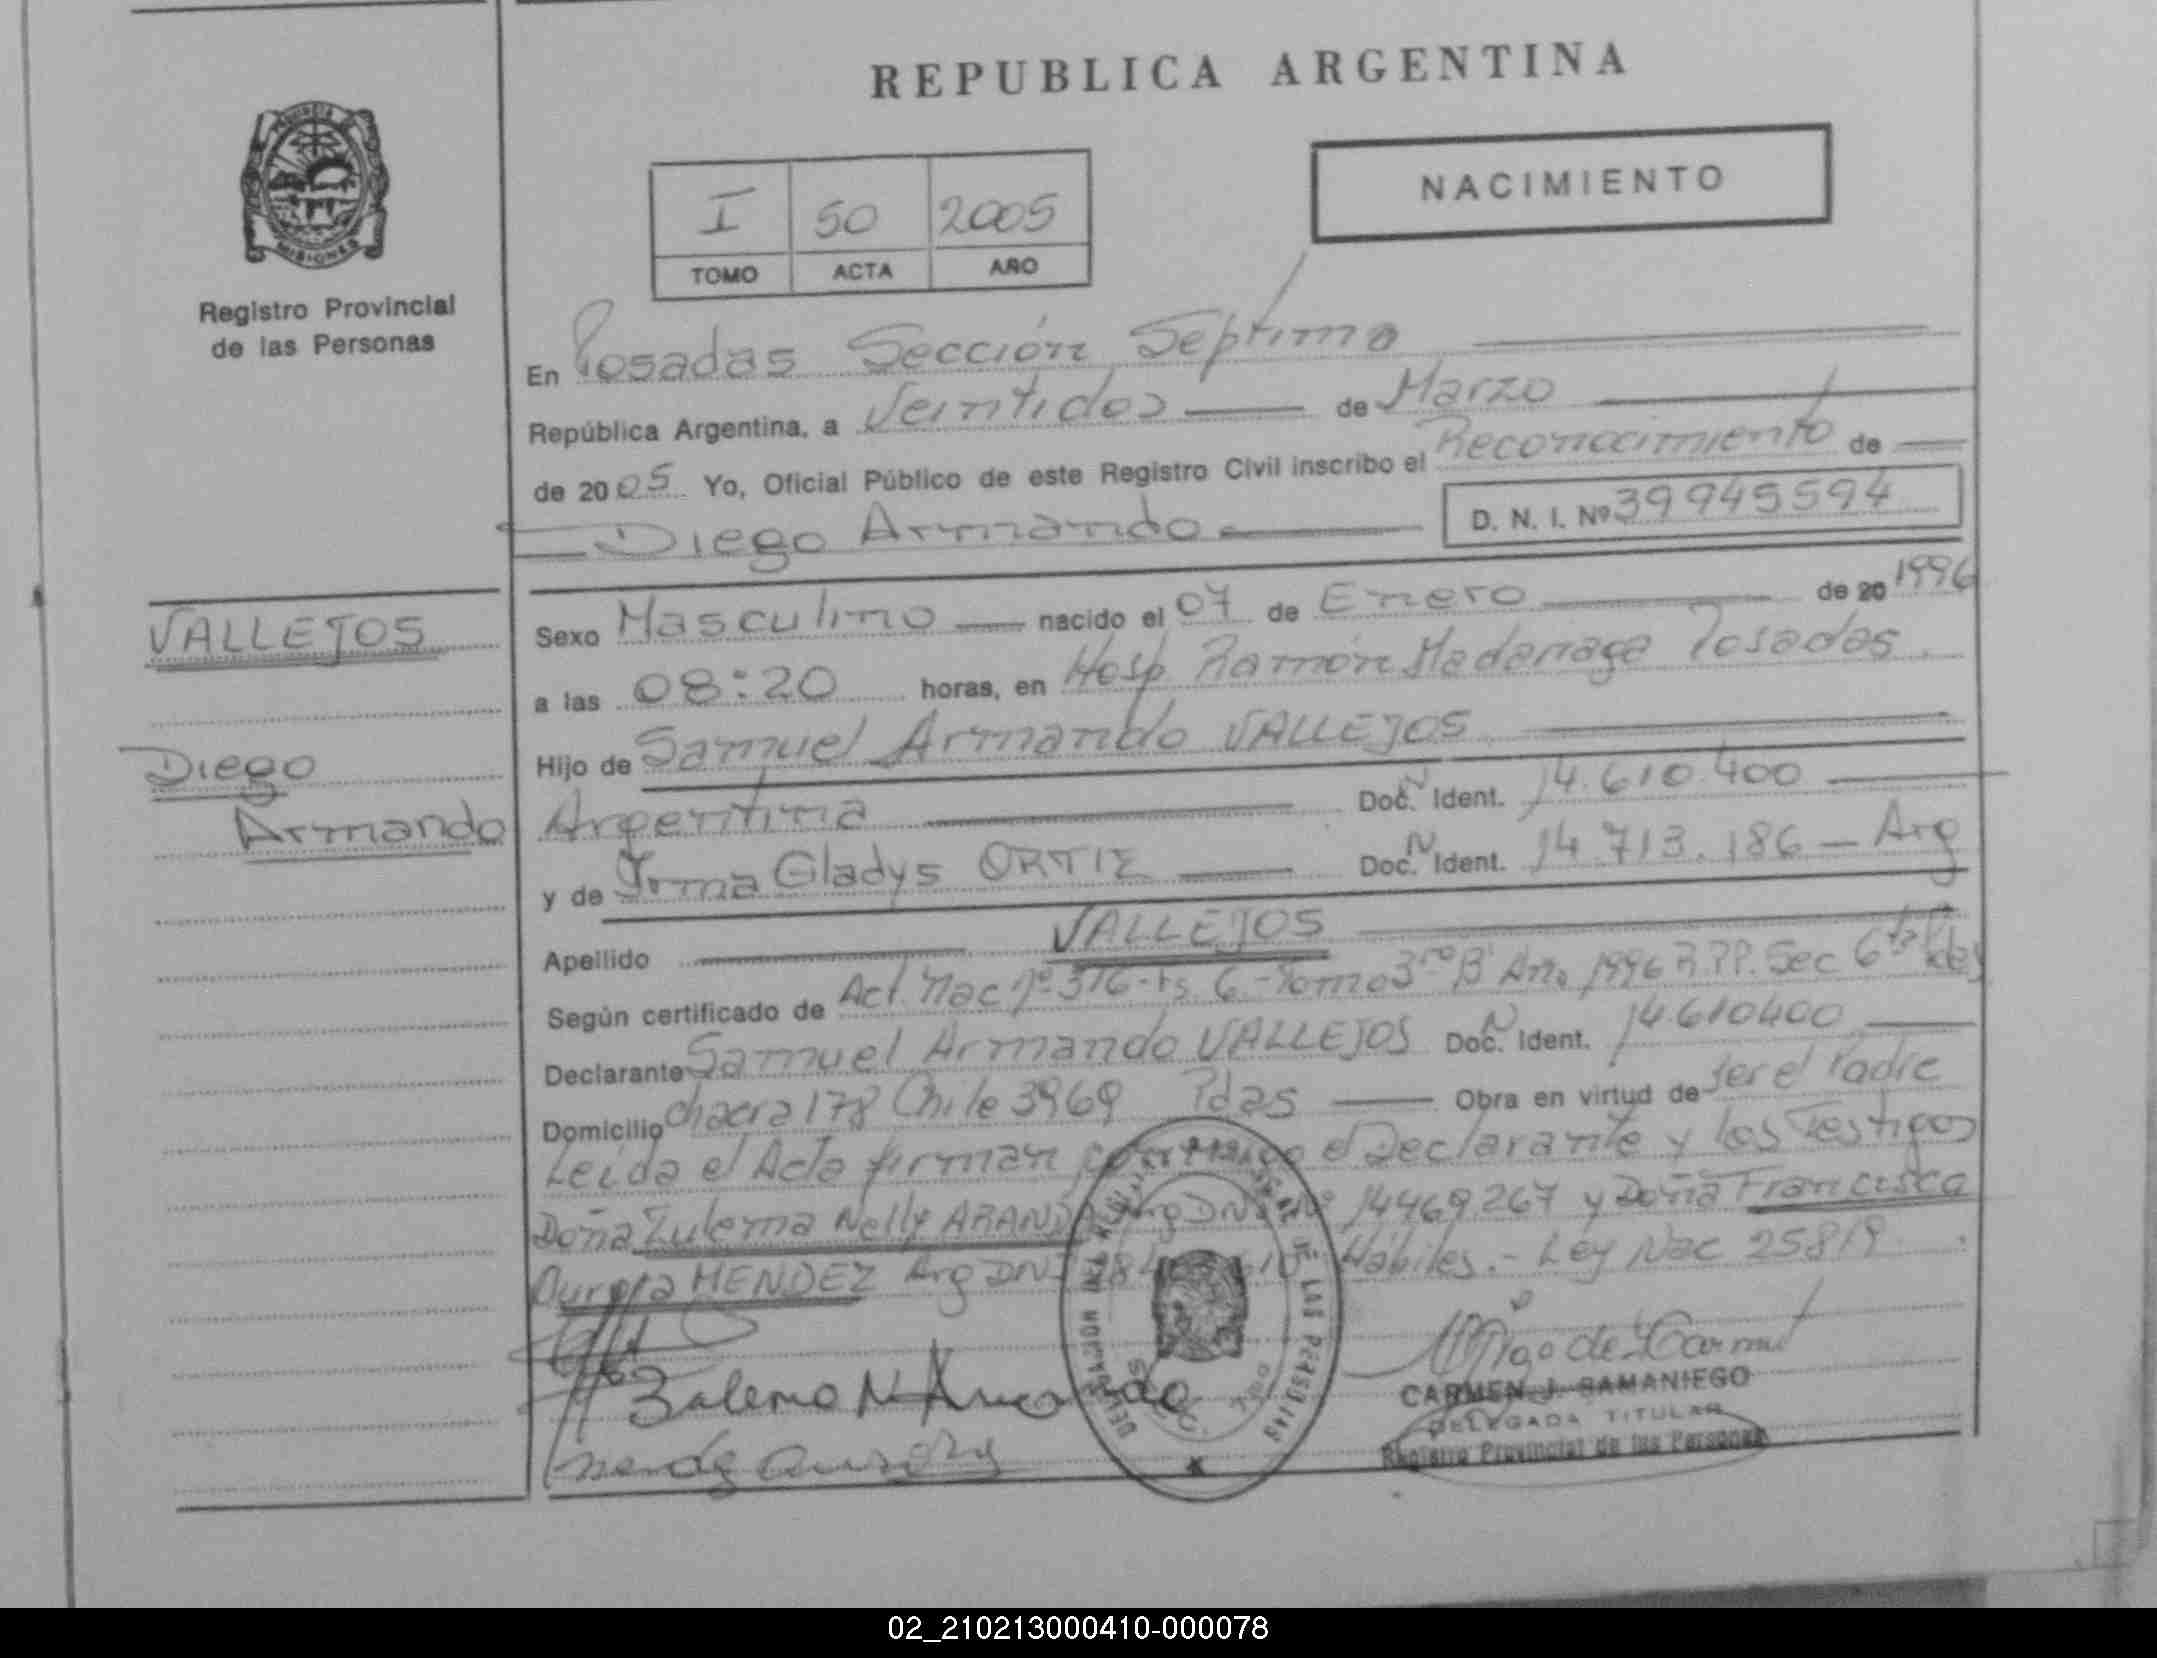 REPUBLICA ARGENTINA
PROVINCIA DE
MISIONES
Registro Provincial
de las Personas
NACIMIENTO
I 50 2005
TOMO ACTA AÑO
En Posadas Sección Septima
República Argentina, a Veintidos de Marzo
de 2005 Yo, Oficial Público de este Registro Civil inscribo el Reconocimiento de
Diego Armando D. N. I. Nº 39945594
VALLEJOS
Diego
Armando
Sexo Masculino nacido el 07 de Enero de 20 1996
a las 08:20 horas, en Hosp. Ramón Madariaga Posadas.
Hijo de Samuel Armando VALLEJOS
Argentina Doc. N Ident. 14.610.400
y de Irma Gladys ORTIZ Doc. N Ident. 14.713.186 - Arg
Apellido VALLEJOS
Según certificado de Act. Nac Nº 316 - Fs. 6 - Tomo 3ro B Año 1996 R.P.P. Sec 6ta
Declarante Samuel Armando VALLEJOS Doc. N Ident. 14.610400
Domicilio chacra 178 Chile 3969 Pdas Obra en virtud de ser el Padre
Leida el Acta firman el Declarante y los Testigos
Doña Zulema Nelly ARANDA Arg DNI Nº 14469267 y Doña Francisca
Aurora MENDEZ Arg DNI Hábiles. - Ley Nac 25819.
CARMEN J. SAMANIEGO
DELEGADA TITULAR
Registro Provincial de las Personas
02_210213000410-000078